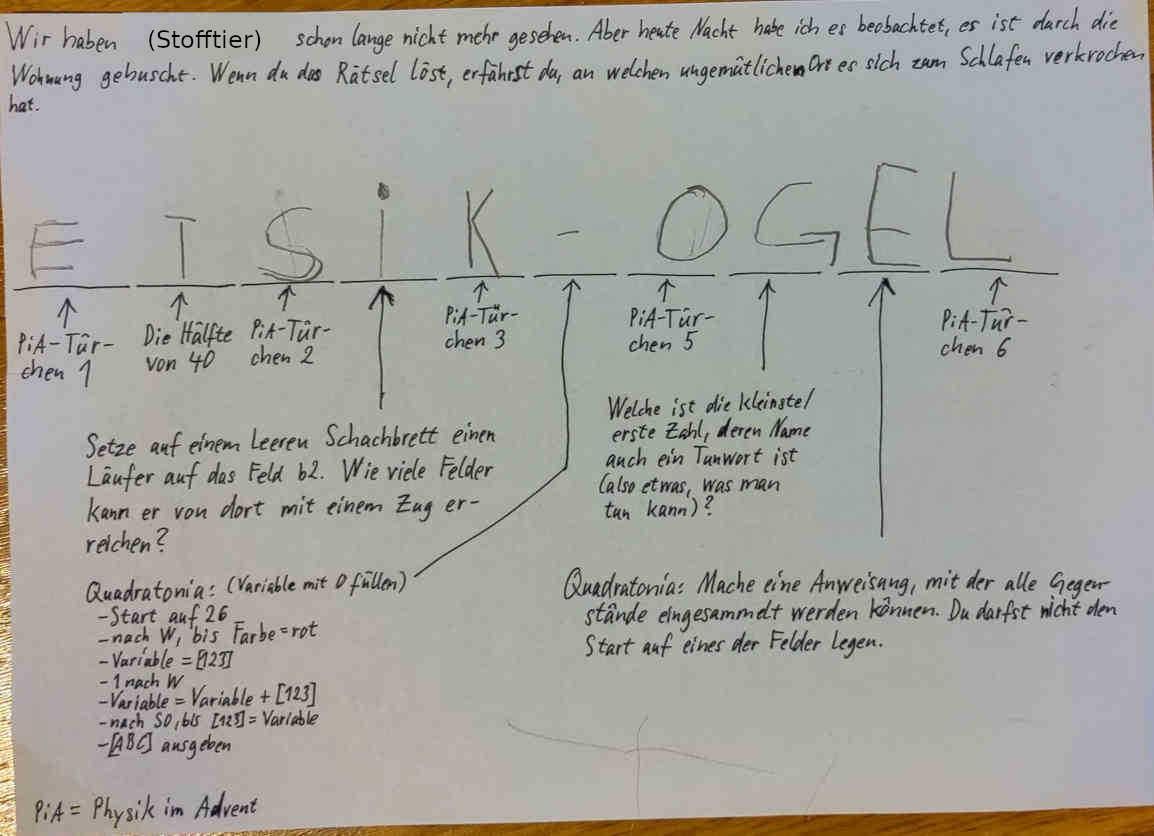 Wir haben (Stofftier) schon lange nicht mehr gesehen. Aber heute Nacht habe ich es beobachtet, es ist durch die
Wohnung gehuscht. Wenn du das Rätsel löst, erfährst du, an welchen ungemütlichen Ort es sich zum Schlafen verkrochen
hat.
E T S i K - O G E L
PiA-Tür-
chen 1
Die Hälfte
von 40
PiA-Tür-
chen 2
PiA-Tür-
chen 3
PiA-Tür-
chen 5
PiA-Tür-
chen 6
Setze auf einem leeren Schachbrett einen
Läufer auf das Feld b2. Wie viele Felder
kann er von dort mit einem Zug er-
reichen?
Welche ist die kleinste/
erste Zahl, deren Name
auch ein Tunwort ist
(also etwas, was man
tun kann)?
Quadratonia: (Variable mit 0 füllen)
-Start auf 26
-nach W, bis Farbe=rot
-Variable = [123]
-1 nach W
-Variable = Variable + [123]
-nach SO, bis [123] = Variable
-[ABC] ausgeben
Quadratonia: Mache eine Anweisung, mit der alle Gegen-
stände eingesammelt werden können. Du darfst nicht den
Start auf eines der Felder legen.
PiA = Physik im Advent